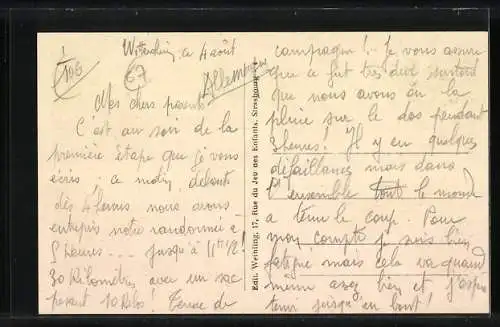 ce 4 août
105
67
Allemagne
Mes chers parents
C'est au soir de la
première étape que je vous
écris : ce matin, debout
dès 4 heures nous avons
entrepris notre randonnée à
5 heures... jusqu'à 11 h 1/2 !
30 kilomètres avec un sac
pesant 10 kilos ! Tenue de
Edit. Weinling, 17, Rue du Jeu des Enfants, Strasbourg
campagne !.. Je vous assure
que ce fut très dur surtout
que nous avons eu la
pluie sur le dos pendant
3 heures ! Il y eu quelques
défaillances mais dans
l'ensemble tout le monde
a tenu le coup. Pour
mon compte je suis bien
fatigué mais cela va quand
même assez bien et j'espère
tenir jusqu'au bout !